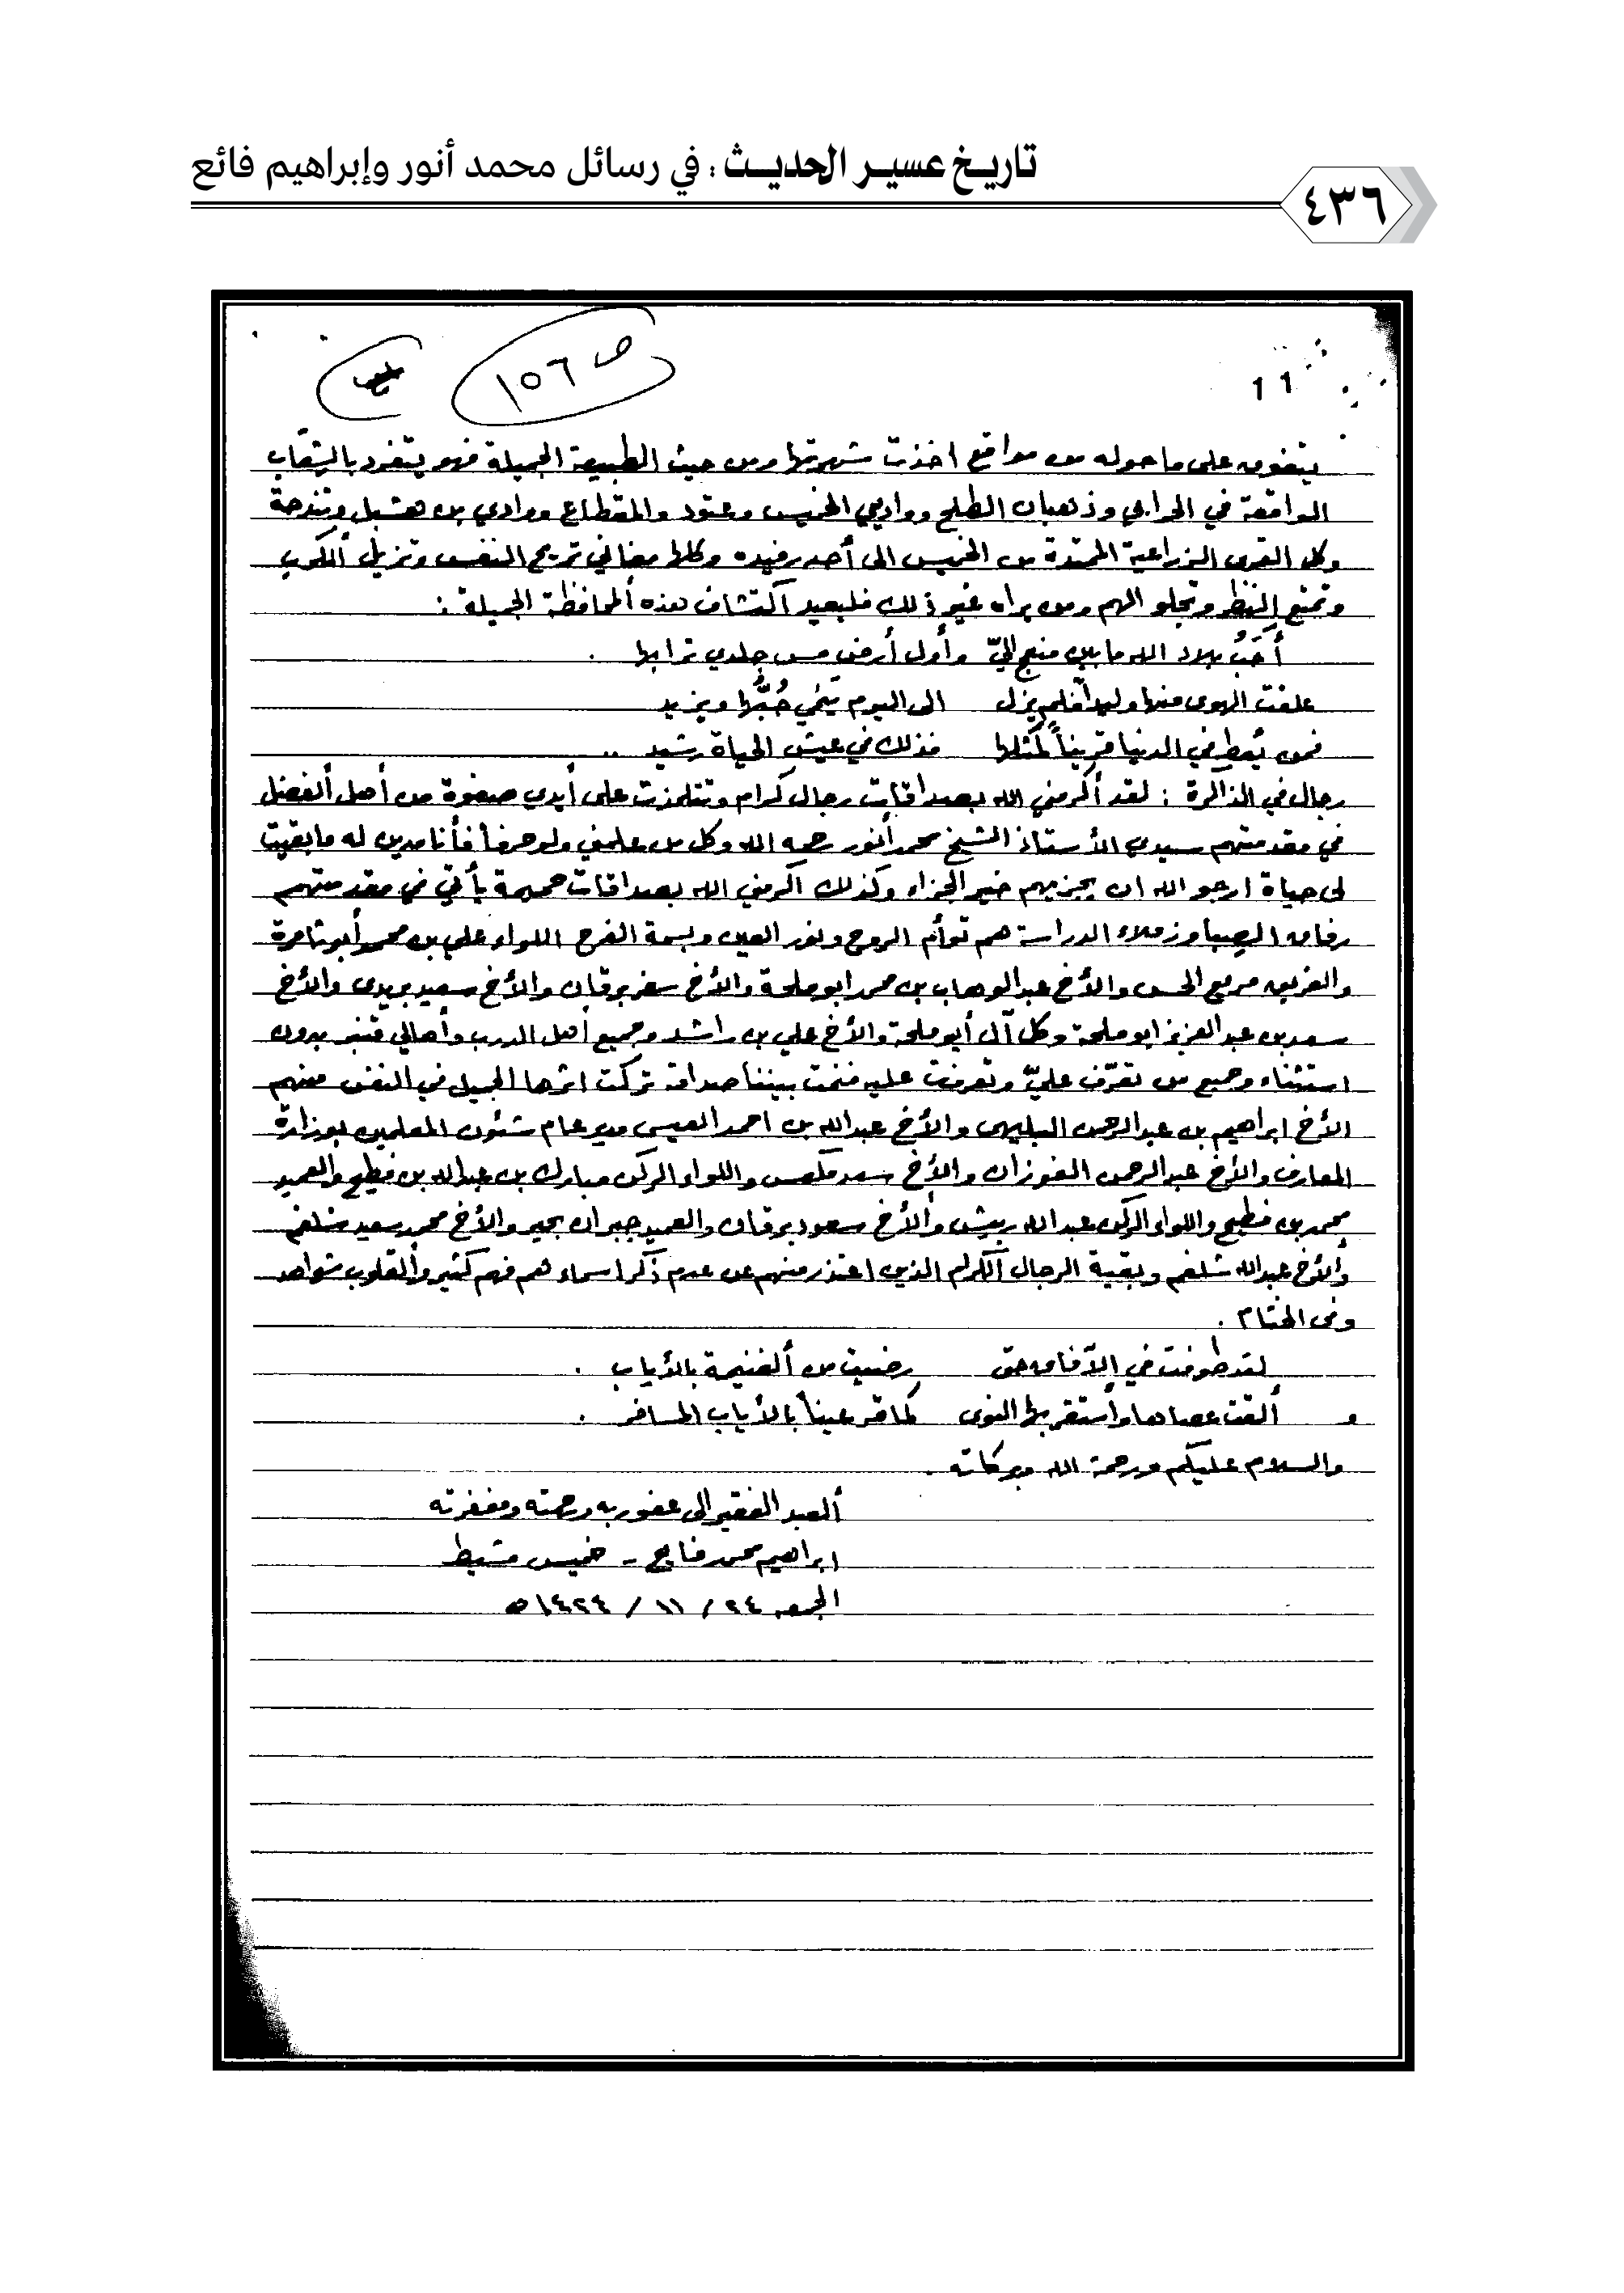 تاريخ عسير الحديث : في رسائل محمد أنور وإبراهيم فائع
٤٣٦
ص ١٥٦
11
يتفوق على ما حوله من مواقع اخذت شهرتها ومن حيث الطبيعة الجميلة فهو يتفرد بالشعاب
الواقعة في الحرابي وذهبان الطلح ووادي الخميس وعتود والمقطاع ووادي بن هشبل وتندحة
وكل القرى الزراعية الممتدة من الخميس الى أحد رفيده وكلها مغاني تريح النفس وتزيل الكرب
وتمتع النظر وتجلو الهم ومن يراه غير ذلك فليعيد اكتشاف هذه المحافظة الجميلة :
أحَبُّ بلاد الله ما بين منعج اليّ وأول أرض مس جلدي ترابها .
علقت الهوى منها وليداً فلم يزل الى اليوم ينمي حُبُّها ويزيد
فمن يُعط في الدنيا قريناً كمثلها فذلك في عيش الحياة رشيد ..
رجال في الذاكرة : لقد أكرمني الله بصداقات رجال كرام وتتلمذت على أيدي صفوة من أهل ألفضل
في مقدمتهم سيدي الأستاذ الشيخ محمد أنور رحمه الله وكل من علمني ولو حرفاً فأنا مدين له مابقيت
لى حياة ارجو الله ان يجزيهم خير الجزاء وكذلك اكرمني الله بصداقات حميمة يأتي في مقدمتهم
رفاق الصبا وزملاء الدراسة هم توأم الروح ونور العين وبسمة الفرح اللواء علي بن محمد أبوتامرة
والفريق مريع الحسن والأخ عبدالوهاب بن محمد ابوملحة والأخ سفر برقان والأخ سعيد بريدى والأخ
سعد بن عبدالعزيز ابوملحة وكل آل أبوملحة والأخ علي بن راشد وجميع أهل الدرب وأهالي قنبر بدون
استثناء وجميع من تعرّف عليّ وتعرفت عليه فنمت بيننا صداقة تركت اثرها الجميل في النفس منهم
الأخ ابراهيم بن عبدالرحمن البليهى والأخ عبدالله بن احمد العيسى مدير عام شئون المعلمين بوزارة
المعارف والأخ عبدالرحمن الفوزان والأخ سعد ملعس واللواء الركن مبارك بن عبدالله بن فطيح والعميد
محمد بن فطيح واللواء الركن عبدالله ربيش والأخ سعود برقان والعميد جبران بحير والأخ محمد سعيد شلغم
وألأخ عبدالله شلغم وبقية الرجال الكرام الذين اعتذر منهم عن عدم ذكر اسماء هم فهم كثير وألقلوب شواهد
وفى الختام .
لقد طوفت في الآفاق حتى رضيت من ألغنيمة بالأياب .
و ألقت عصاها وأستقر بها النوى كما قر عيناً بالأياب المسافر .
والسلام عليكم ورحمة الله وبركاته .
ألعبد الفقير الى عفو ربه ورحمته ومغفرته
ابراهيم محمد فايع - خميس مشيط
الجمعه ٢٤ / ١١ / ١٤٢٤ ه